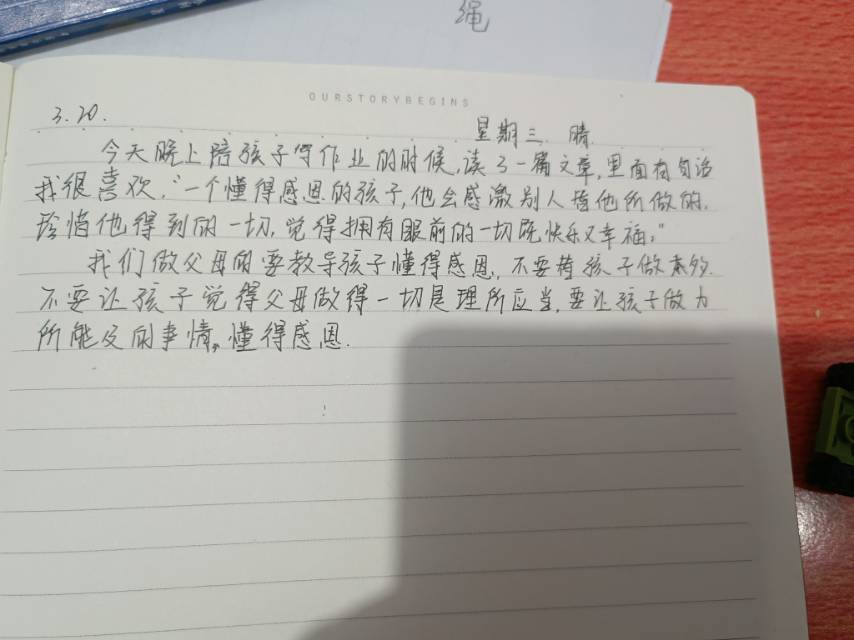 绳
OURSTORYBEGINS
3.20.
星期三. 晴.
今天晚上陪孩子写作业的时候,读了一篇文章,里面有句话
我很喜欢,“一个懂得感恩的孩子,他会感激别人替他所做的,
珍惜他得到的一切,觉得拥有眼前的一切既快乐又幸福。”
我们做父母的要教导孩子懂得感恩,不要替孩子做太多.
不要让孩子觉得父母做得一切是理所应当,要让孩子做力
所能及的事情,懂得感恩.